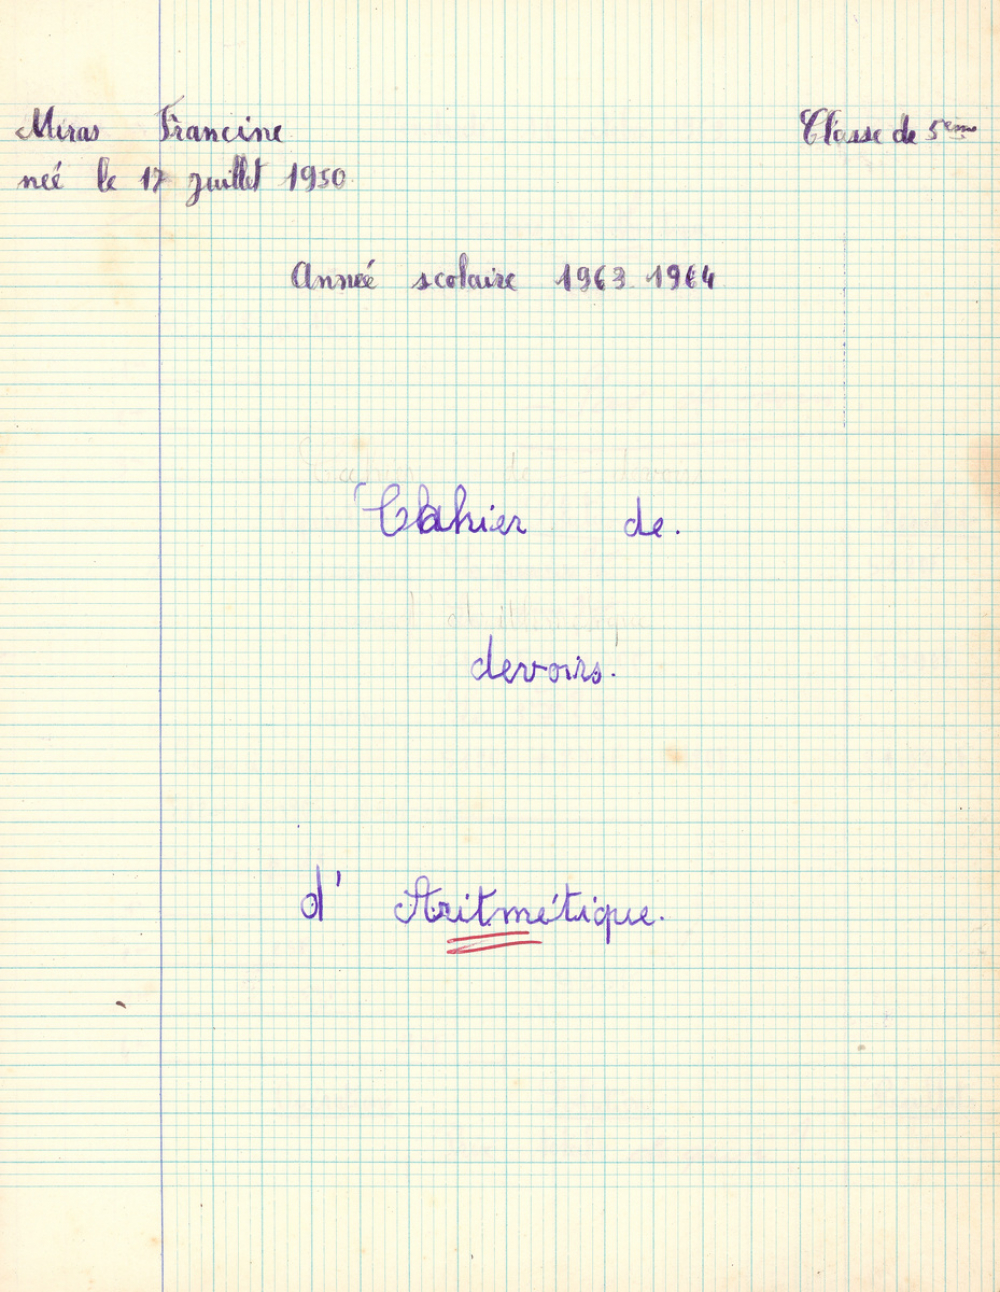 Miras Francine Classe de 5eme
neé le 17 juillet 1950
Anneé scolaire 1963 1964
Cahier de.
devoirs.
d' Aritmétique.